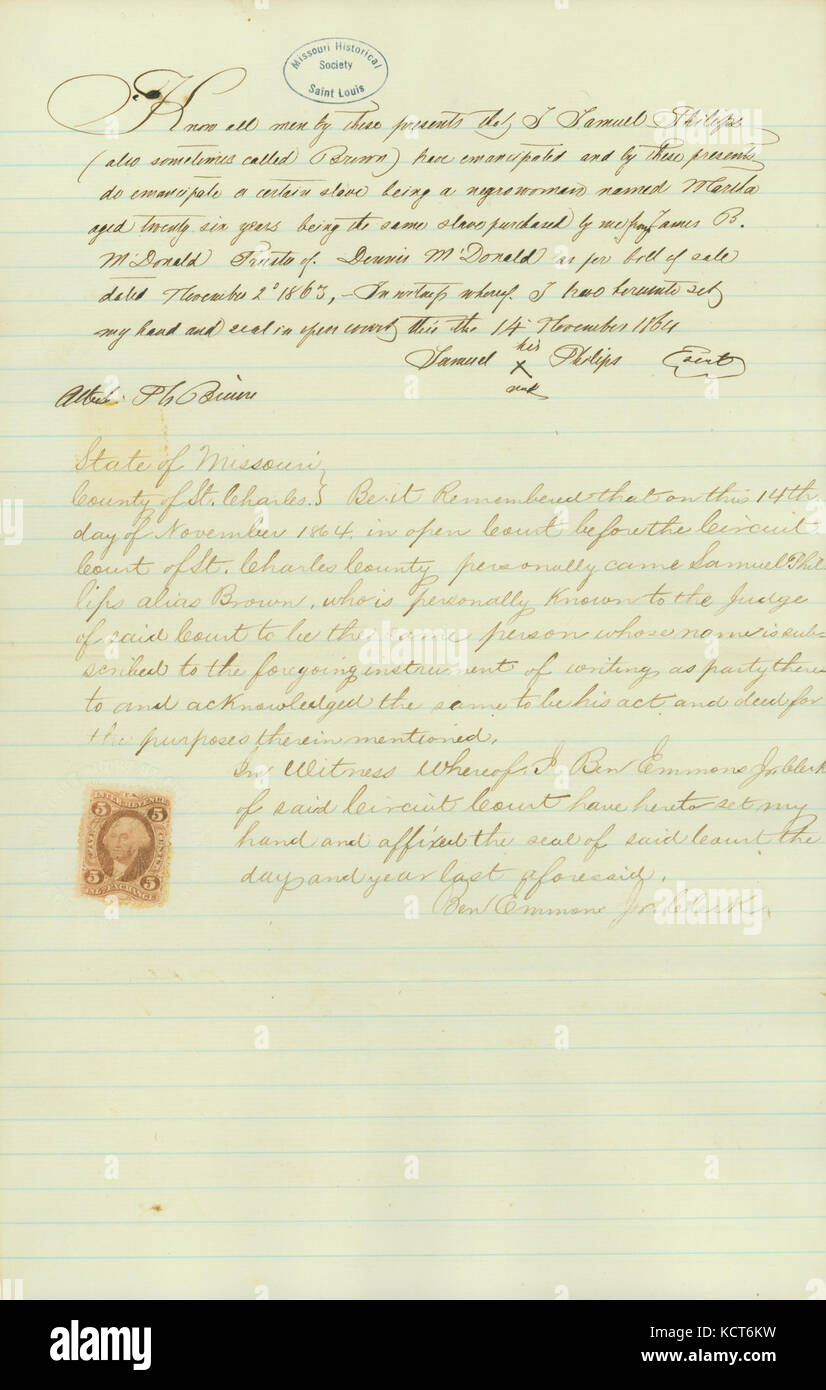 Missouri Historical
Society
Saint Louis
Know all men by these presents that I Samuel Philips
(also sometimes called Brown) have emancipated and by these presents
do emancipate a certain slave being a negro woman named Marila
aged twenty six years being the same slave purchased by me from James B.
McDonald Trustee of Dennis McDonald as per bill of sale
dated November 2d 1863, – In witness whereof I have hereunto set
my hand and seal in open court this the 14 November 1864
his
Samuel X Philips
mark
Attest
State of Missouri
County of St. Charles } Be it Remembered that on this 14th
day of November 1864. in open Court before the Circuit
Court of St. Charles County personally came Samuel Phil
lips alias Brown, who is personally known to the Judge
of said Court to be the same person whose name is sub=
scribed to the foregoing instrument of writing as party there
to and acknowledged the same to be his act and deed for
the purposes therein mentioned.
In Witness Whereof I Ben Emmons Jr. Clerk
of said Circuit Court have hereto set my
hand and affixed the seal of said Court the
day and year last aforesaid.
Ben Emmons Jr. Clerk
5 INTER. REVENUE 5
FIVE CENTS
5 5
alamy
a
alamy
Image ID: KCT6KW
www.alamy.com